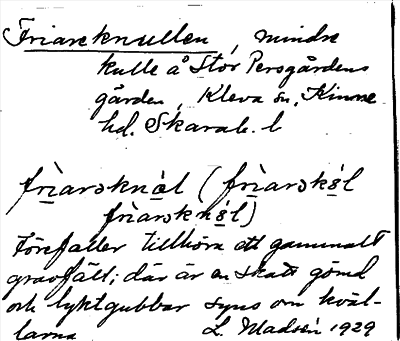 Friareknullen, mindre
kulle å Stor Persgårdens
gården, Kleva sn, Kinne
hd. Skarab. l
frìarəknal (frìarəskəl
frìarəkkəl)
Förefaller tillhöra ett gammalt
gravfält; där är en skatt gömd
och lyktgubbar syns om kväl-
larna L. Madsén 1929